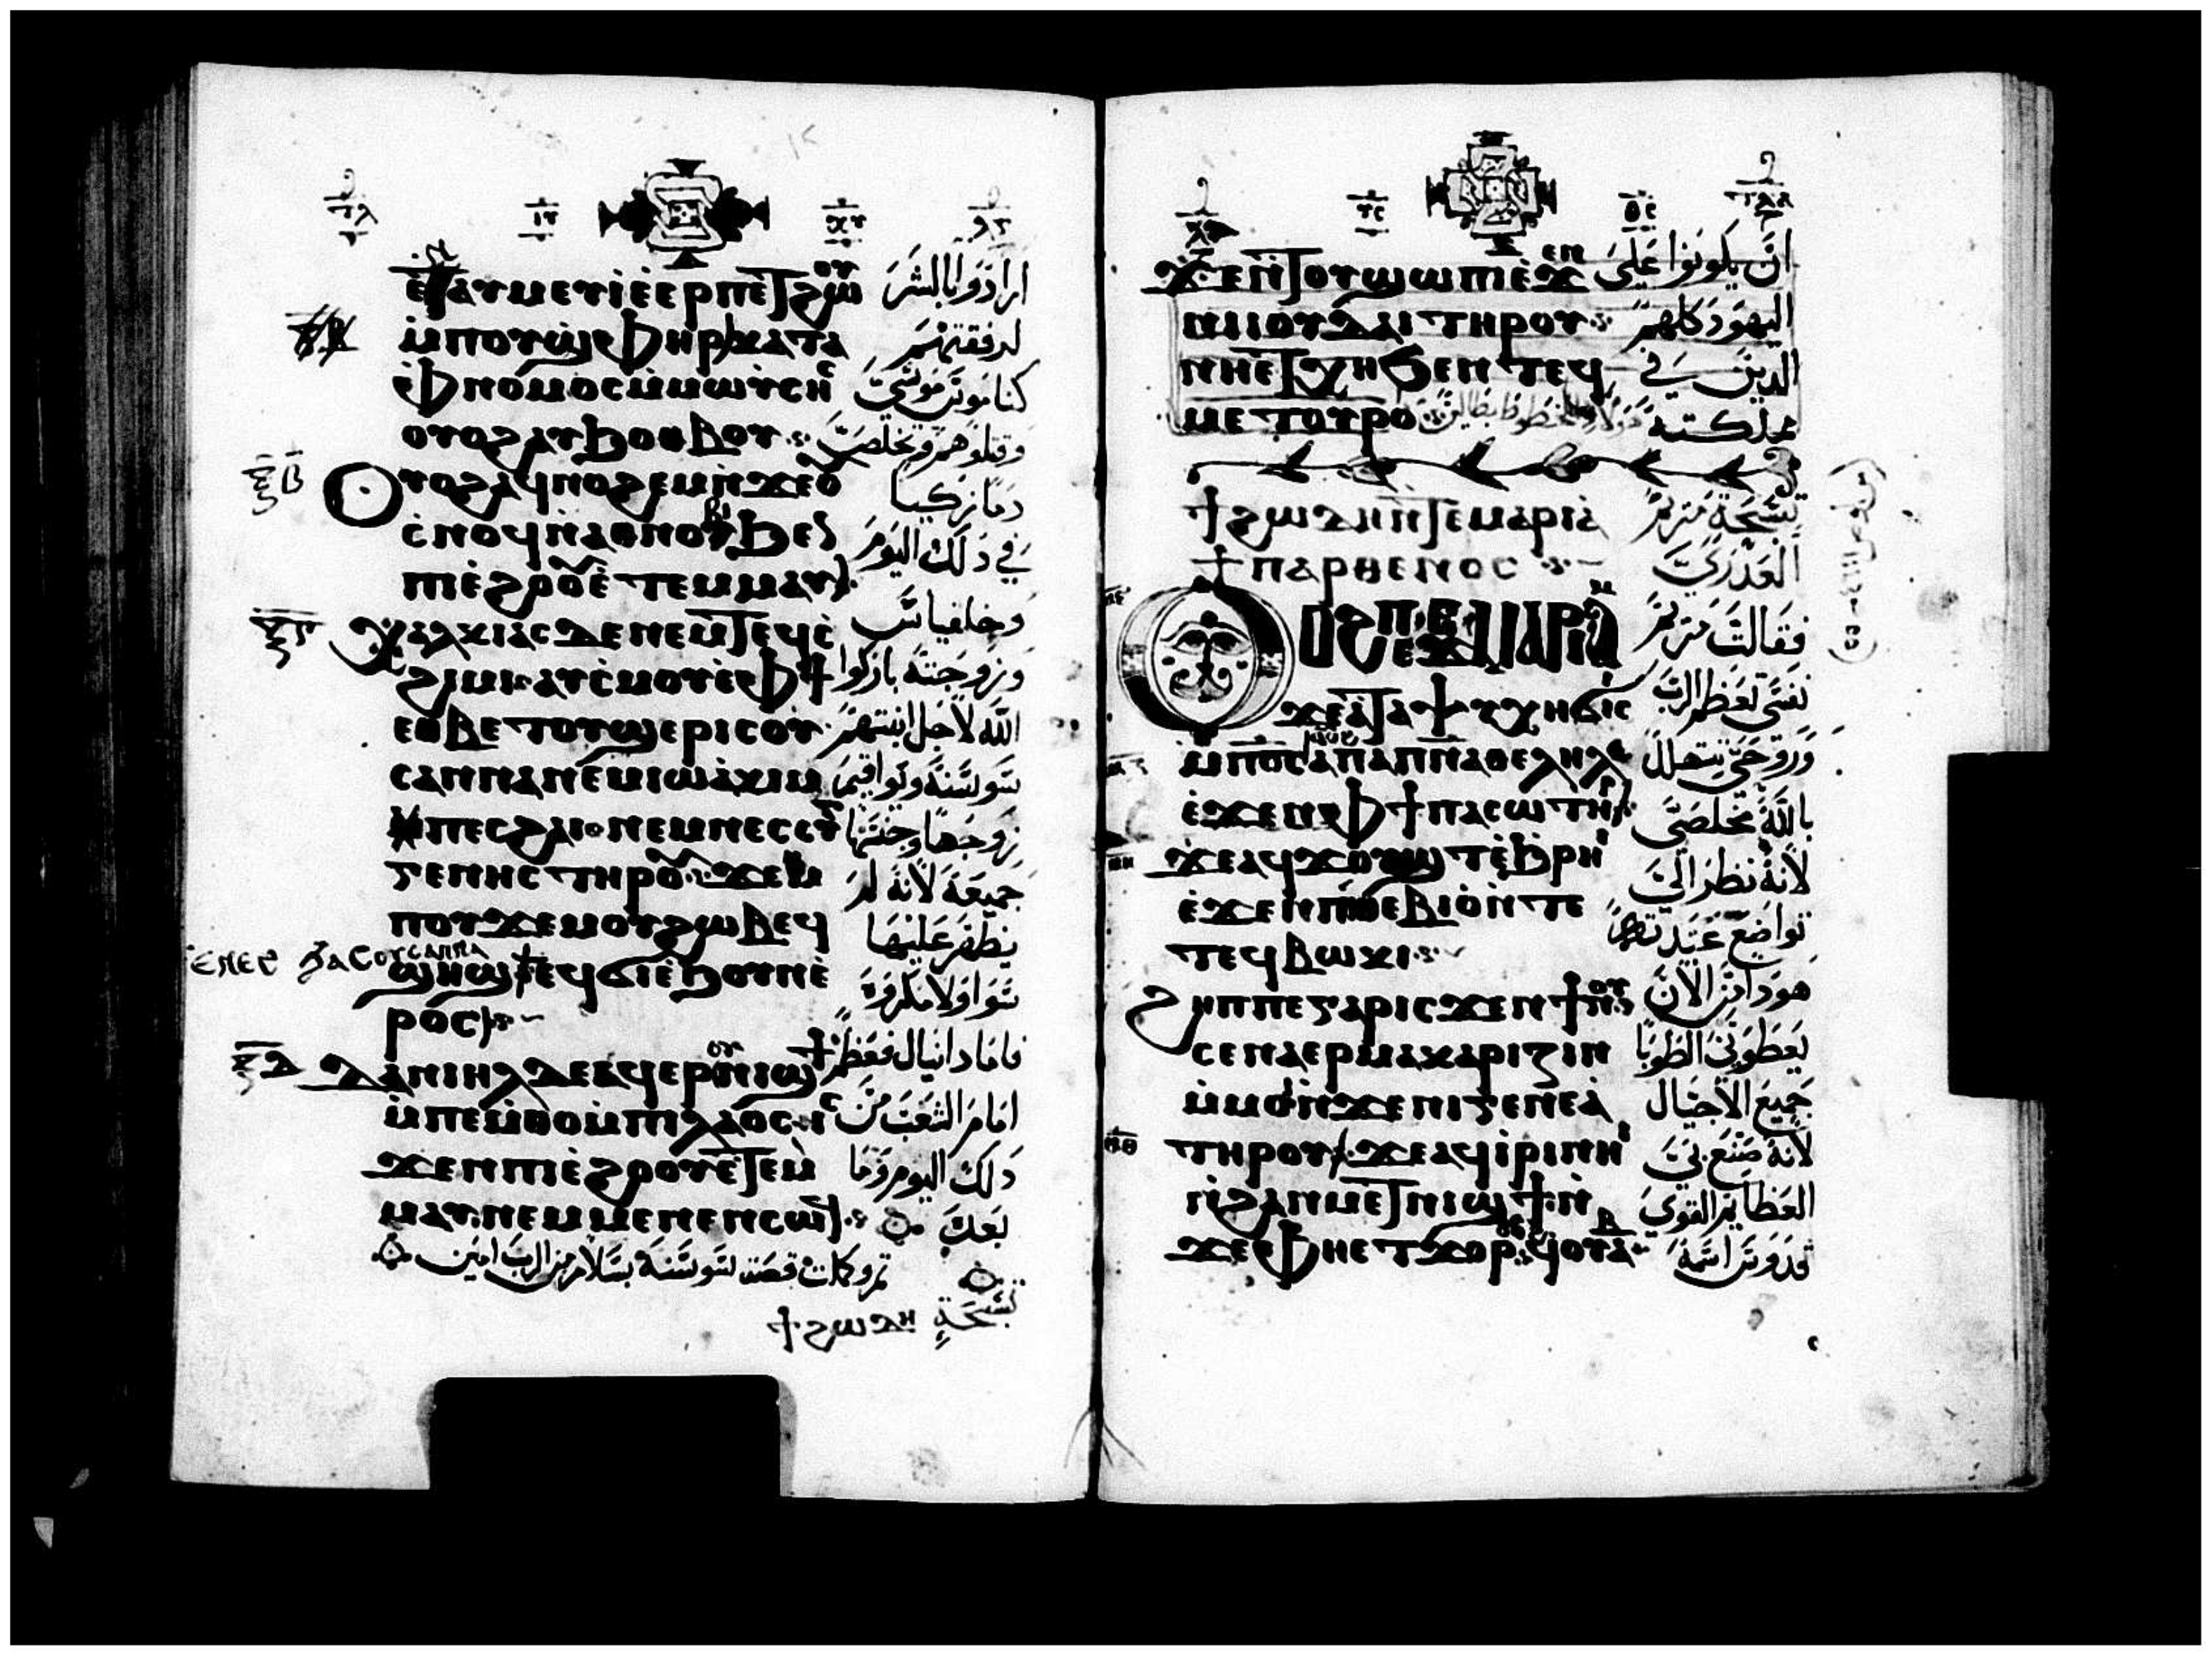 ⲉⲧⲁⲩⲙⲉⲩⲓ ⲉⲉⲣⲡⲉⲧϩⲱⲟⲩ
ارادوا بالشر
ⲙⲡⲟⲩϣⲫⲏⲣ ⲕⲁⲧⲁ
لرفقتهم
ⲫⲛⲟⲙⲟⲥ ⲙⲙⲱⲩⲥⲏⲥ
كناموس موسى
ⲟⲩⲟϩ ⲁⲩϧⲟⲑⲃⲟⲩ
وقتلوهم وتخلصت
ⲝⲃ
ⲟⲩⲟϩ ⲁϥⲛⲟϩⲉⲙ ⲛϫⲉⲟⲩ
دما زكيا
ⲥⲛⲟϥ ⲛⲁⲑⲛⲟⲃⲓ ϧⲉⲛ
في ذلك اليوم
ⲡⲓⲉϩⲟⲟⲩ ⲉⲧⲉⲙⲙⲁⲩ
ⲝⲅ
ⲭⲁⲗⲕⲓⲁⲥ ⲇⲉ ⲛⲉⲙ ⲧⲉϥⲥ
وخلقياس
ϩⲓⲙⲓ ⲁⲩⲥⲙⲟⲩ ⲉⲫϯ
وزوجته باركوا
ⲉⲑⲃⲉ ⲧⲟⲩϣⲉⲣⲓ ⲥⲟⲩ
الله لاجل ابنتهم
ⲥⲁⲛⲛⲁ ⲛⲉⲙ ⲓⲱⲁⲕⲓⲙ
سوسنة ويواقيم
ⲡⲉⲥϩⲁⲓ ⲛⲉⲙ ⲛⲉⲥⲥⲩⲛ
زوجها وجنسها
ⲅⲉⲛⲏⲥ ⲧⲏⲣⲟⲩ ϫⲉ ⲙ
جميعه لانه لم
ⲡⲟⲩϫⲉⲙ ⲟⲩϩⲱⲃ ⲉϥ
يظهر عليها
ϣⲏϣ
ⲣⲟⲥ
ⲝⲇ
ⲇⲁⲛⲓⲏⲗ ⲇⲉ ⲁϥⲉⲣⲟⲩⲛⲓϣϯ
فاما دانيال فعظم
ⲙⲡⲉⲙⲑⲟ ⲙⲡⲓⲗⲁⲟⲥ ⲓⲥ
امام الشعب من
ϫⲉⲛ ⲡⲓⲉϩⲟⲟⲩ ⲉⲧⲉⲙ
ذلك اليوم وما
ⲙⲁⲩ ⲛⲉⲙ ⲙⲉⲛⲉⲛⲥⲱϥ
بعد
تم وكملت قصة سوسنة بسلام من الرب امين
تسبحة
ϯϩⲱⲇⲏ
ϫⲉ ⲛⲧⲟⲩϣⲱⲡⲓ ⲉϫⲉⲛ
ان يكونوا على
ⲛⲓⲓⲟⲩⲇⲁⲓ ⲧⲏⲣⲟⲩ
اليهود كلهم
ⲛⲏⲉⲧⲭⲏ ϧⲉⲛ ⲧⲉϥ
الذين في
ⲙⲉⲧⲟⲩⲣⲟ
مملكته
ϯϩⲱⲇⲏ ⲛⲧⲉ ⲙⲁⲣⲓⲁ
تسبحة مريم
ϯⲡⲁⲣⲑⲉⲛⲟⲥ
العذرى
ⲟⲩⲟϩ ⲡⲉϫⲉ ⲙⲁⲣⲓⲁⲙ
فقالت مريم
ϫⲉ ⲁⲧⲁⲯⲩⲭⲏ ϭⲓⲥⲓ
نفسي تعظم الرب
ⲙⲡϭⲟⲓⲥ ⲁⲡⲁⲡⲛⲁ ⲑⲉⲗⲏⲗ
وروحي تتهلل
ⲉϫⲉⲛ ⲫϯ ⲡⲁⲥⲱⲧⲏⲣ
بالله مخلصي
ⲙⲏ
ϫⲉ ⲁϥϫⲟⲩϣⲧ ⲉϧⲣⲏⲓ
لانه نظر الى
ⲉϫⲉⲛ ⲡⲑⲉⲃⲓⲟ ⲛⲧⲉ
تواضع عبدته
ⲧⲉϥⲃⲱⲕⲓ
ϩⲏⲡⲡⲉ ⲅⲁⲣ ⲓⲥϫⲉⲛ ϯⲛⲟⲩ
هودا من الان
ⲥⲉⲛⲁⲉⲣⲙⲁⲕⲁⲣⲓⲍⲓⲛ
يعطوني الطوبا
ⲙⲙⲟⲓ ⲛϫⲉ ⲛⲓⲅⲉⲛⲉⲁ
جميع الاجيال
ⲙⲑ
ⲧⲏⲣⲟⲩ ϫⲉ ⲁϥⲓⲣⲓ ⲛⲏⲓ
لانه صنع بي
ⲛϩⲁⲛⲙⲉⲧⲛⲓϣϯ ⲛ
العظايم القوي
ϫⲉ ⲫⲏⲉⲧϫⲟⲣ ϥⲟⲩⲁⲃ
قدوس اسمه